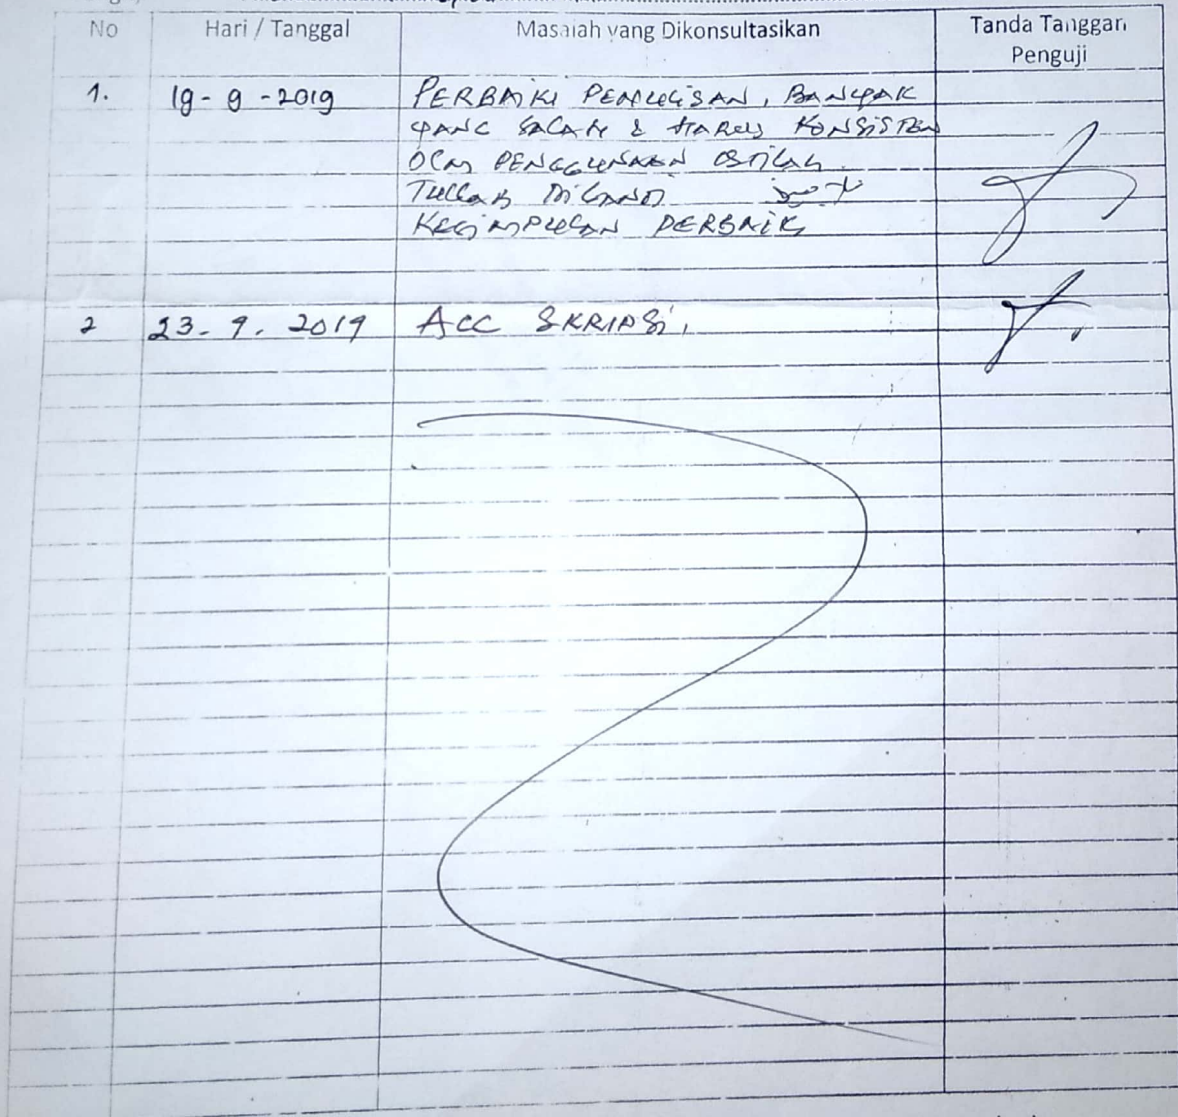 No Hari / Tanggal Masalah yang Dikonsultasikan Tanda Tanggan Penguji
1. 19 - 9 - 2019 PERBAIKI PENULISAN, BANYAK
YANG SALAH & HARUS KONSISTEN
DLM PENGGUNAAN ISTILAH
KESIMPULAN PERBAIKI
2 23. 9. 2019 ACC SKRIPSI,